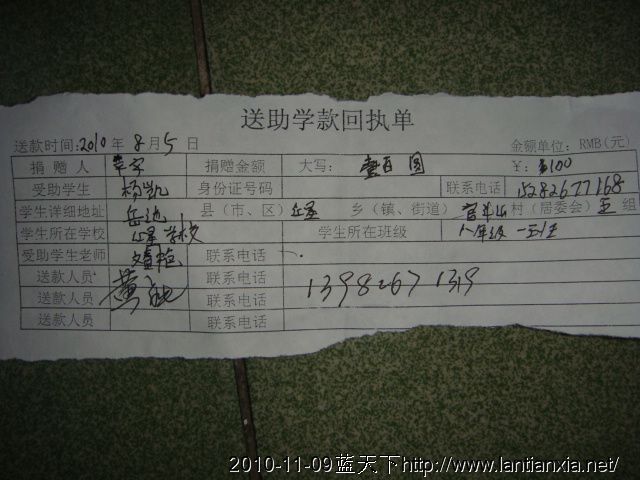 送助学款回执单
送款时间:2010年8月5日 金额单位: RMB(元)
捐赠人 捐赠金额 大写: 壹百圆 ¥: 100
受助学生 杨凯 身份证号码 联系电话 15282677168
学生详细地址 岳池 县(市、区) 乡(镇、街道) 村(居委会) 五 组
学生所在学校 学校 学生所在班级 八年级一班
受助学生老师 联系电话
送款人员 联系电话
送款人员 黄 联系电话 13982671319
送款人员 联系电话
2010-11-09蓝天下http://www.lantianxia.net/